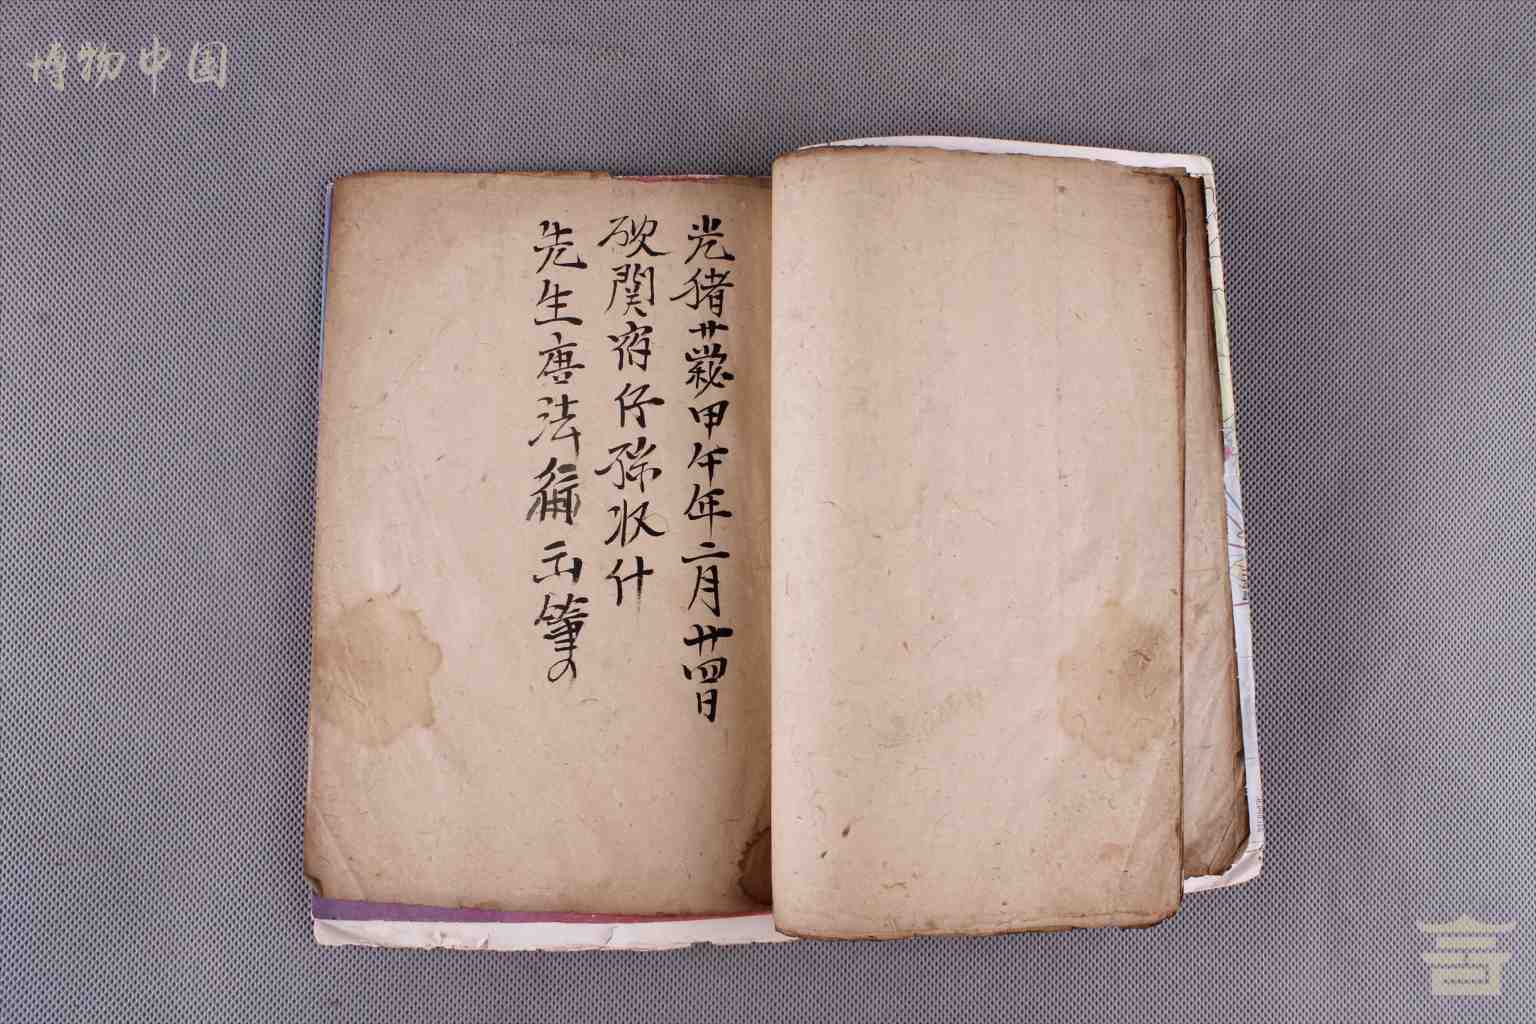 博物中国
光猪廿歲甲午年二月廿四日
砍関宿仔孫收什
先生唐法 示筆